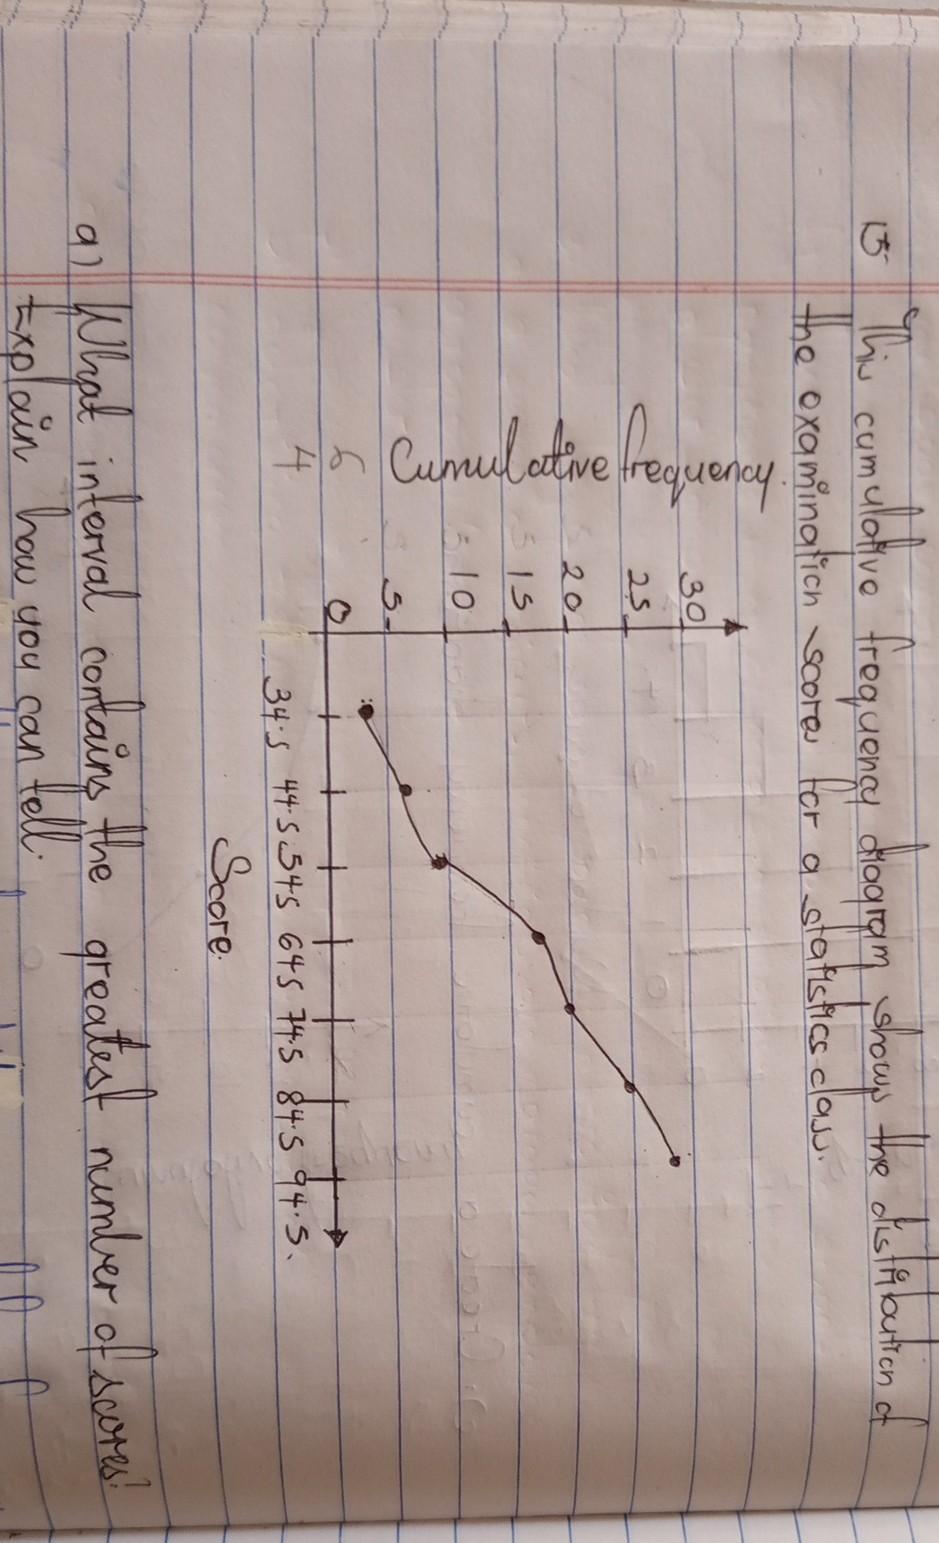 15 This cumulative frequency diagram shows the distribution of
the examination scores for a statistics class.
Cumulative frequency.
30
25
20
15
10
5
0
6
4
34.5 44.5 54.5 64.5 74.5 84.5 94.5.
Score.
a) What interval contains the greatest number of scores?
Explain how you can tell.